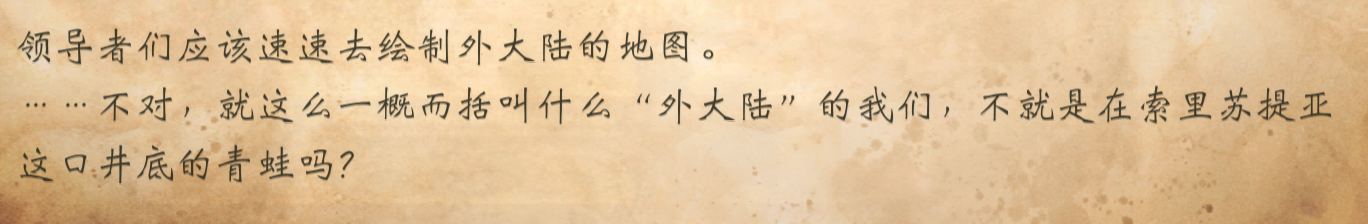 领导者们应该速速去绘制外大陆的地图。
……不对，就这么一概而括叫什么“外大陆”的我们，不就是在索里苏提亚
这口井底的青蛙吗？